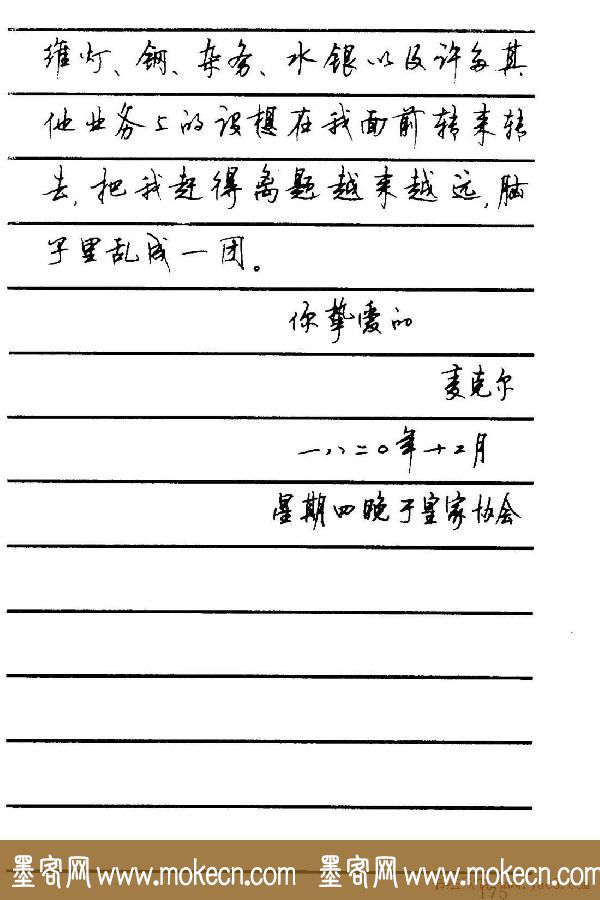 维灯、钢、杂务、水银以及许多其
他业务上的设想在我面前转来转
去,把我赶得离题越来越远,脑
子里乱成一团。
你挚爱的
麦克尔
一八二〇年十二月
星期四晚于皇家协会
墨客网 www.mokecn.com 墨客网 www.mokecn.com
175